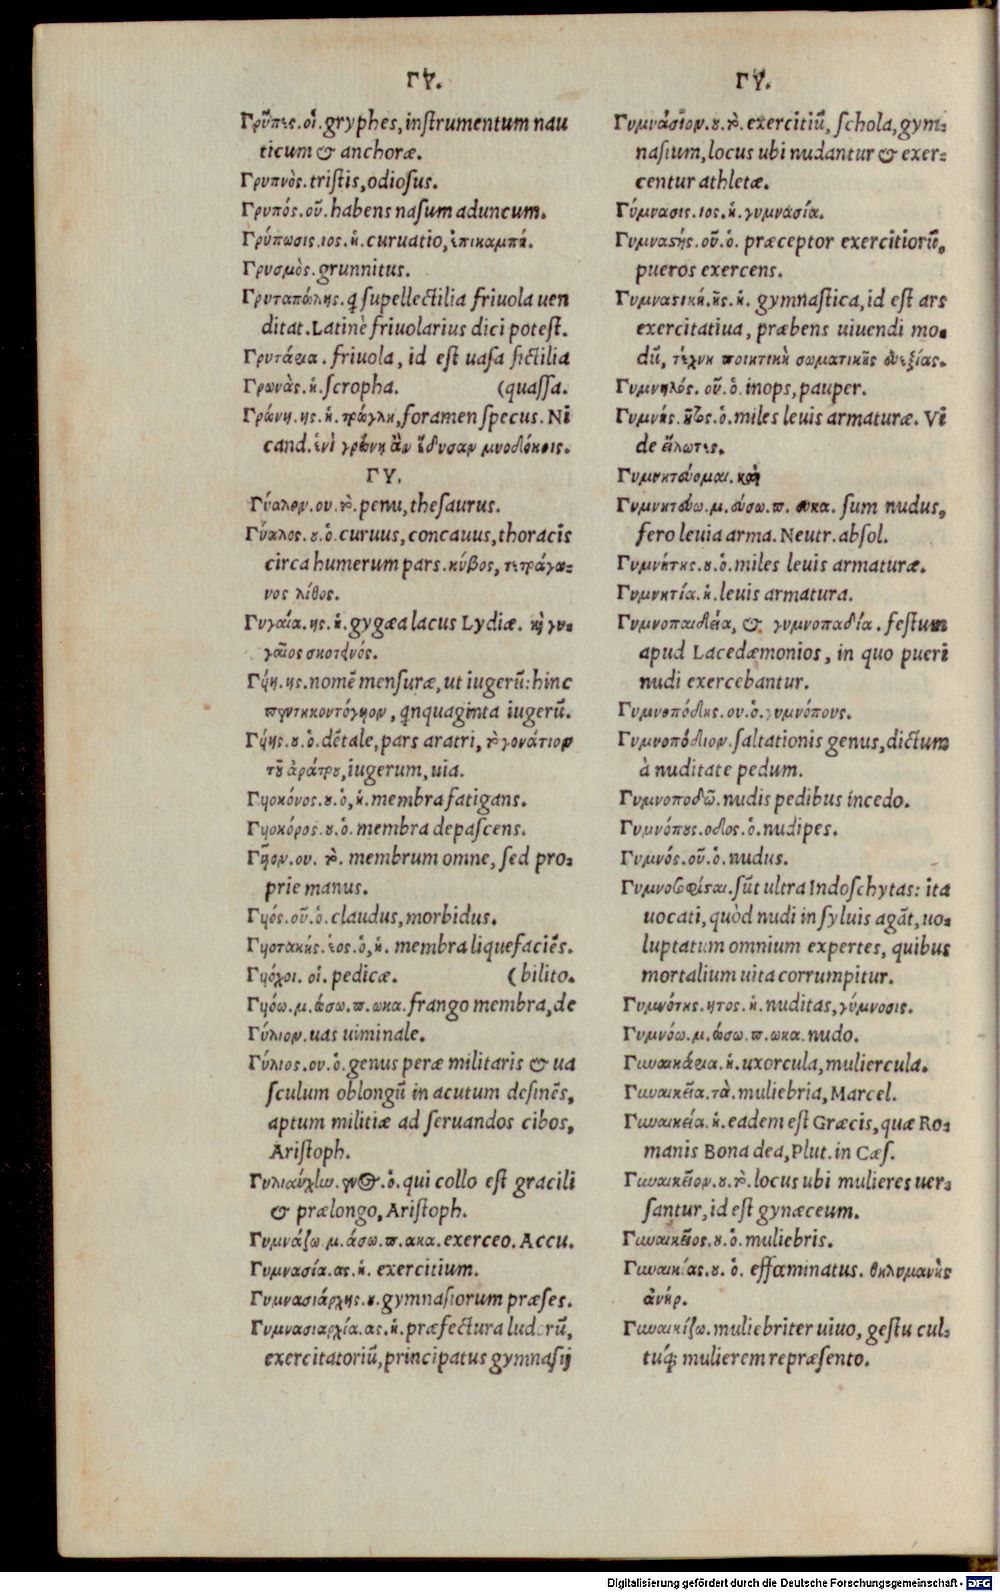 ΓΥ.
Γρῦπες.οἱ.gryphes, instrumentum nau
ticum & anchoræ.
Γρυπνὸς.tristis, odiosus.
Γρυπός.οῦ.habens nasum aduncum.
Γρύπωσις.ιος.ἡ.curuatio, ἐπικαμπή.
Γρυσμὸς.grunnitus.
Γρυταπώλης.q supellectilia friuola uen
ditat.Latinè friuolarius dici potest.
Γρυτάρια.friuola, id est uasa fictilia
Γρωνὰς.ἡ.scropha. (quassa.
Γρώνη.ης.ἡ.τρώγλη, foramen specus. Ni
cand.ἐνὶ γρώνῃ ἂν ἔδυσαν μυοδόκοις.
ΓΥ.
Γύαλον.ου.τὸ.penu, thesaurus.
Γύαλος.ου.ὁ.curuus, concauus, thoracis
circa humerum pars.κύβος, τετράγω-
νος λίθος.
Γυγαία.ης.ἡ.gygæa lacus Lydiæ. καὶ γυ-
γαῖος σκοτεινός.
Γύη.ης.nomē mensuræ, ut iugerū: hinc
πεντηκοντόγυον, qnquaginta iugerū.
Γύης.ου.ὁ.dētale, pars aratri, τὸ γονάτιον
τοῦ ἀρότρου, iugerum, uia.
Γυιοκόνος.ου.ὁ, ἡ.membra fatigans.
Γυιοκόρος.ου.ὁ.membra depascens.
Γυῖον.ου. τὸ. membrum omne, sed pro-
prie manus.
Γυιός.οῦ.ὁ.claudus, morbidus.
Γυιοτακής.έος.ὁ, ἡ. membra liquefaciēs.
Γυιόχοι.οἱ.pedicæ. (bilito.
Γυιόω.μ.ώσω.π.ωκα.frango membra, de
Γύλιον.uas uiminale.
Γύλιος.ου.ὁ.genus peræ militaris & ua
sculum oblongū in acutum desinēs,
aptum militiæ ad seruandos cibos,
Aristoph.
Γυλιαύχην.ενος.ὁ.qui collo est gracili
& prælongo, Aristoph.
Γυμνάζω.μ.άσω.π.ακα.exerceo. Accu.
Γυμνασία.ας.ἡ. exercitium.
Γυμνασιάρχης.ου.gymnasiorum præses.
Γυμνασιαρχία.ας.ἡ.præfectura ludorū,
exercitatoriū, principatus gymnasij
ΓΥ.
Γυμνάσιον.ου.τὸ.exercitiū, schola, gym-
nasium, locus ubi nudantur & exer-
centur athletæ.
Γύμνασις.ιος.ἡ.γυμνασία.
Γυμναστής.οῦ.ὁ. præceptor exercitiorū,
pueros exercens.
Γυμναστική.ῆς.ἡ. gymnastica, id est ars
exercitatiua, præbens uiuendi mo-
dū, τέχνη ποιητικὴ σωματικῆς εὐεξίας.
Γυμνηλός. οῦ.ὁ.inops, pauper.
Γυμνής.ῆτος.ὁ.miles leuis armaturæ. Vi
de εἵλωτες.
Γυμνητεύομαι.καὶ
Γυμνητεύω.μ.εύσω.π. ευκα. sum nudus,
fero leuia arma. Neutr. absol.
Γυμνήτης.ου.ὁ.miles leuis armaturæ.
Γυμνητία.ἡ.leuis armatura.
Γυμνοπαιδεία, & γυμνοπαδία. festum
apud Lacedæmonios, in quo pueri
nudi exercebantur.
Γυμνοπόδης.ου.ὁ.γυμνόπους.
Γυμνοπόδιον.saltationis genus, dictum
à nuditate pedum.
Γυμνοποδῶ.nudis pedibus incedo.
Γυμνόπους.οδος.ὁ.nudipes.
Γυμνός.οῦ.ὁ.nudus.
Γυμνοσοφίσται.sūt ultra Indoschytas: ita
uocati, quòd nudi in syluis agāt, uo-
luptatum omnium expertes, quibus
mortalium uita corrumpitur.
Γυμνότης.ητος.ἡ.nuditas, γύμνοσις.
Γυμνόω.μ.ώσω.π.ωκα.nudo.
Γυναικάρια.ἡ.uxorcula, muliercula.
Γυναικεῖα.τὰ.muliebria, Marcel.
Γυναικεία.ἡ.eadem est Græcis, quæ Ro-
manis Bona dea, Plut. in Cæs.
Γυναικεῖον.ου.τὸ.locus ubi mulieres uer-
santur, id est gynæceum.
Γυναικεῖος.ου.ὁ.muliebris.
Γυναικίας.ου. ὁ. effœminatus. θηλυμανὴς
ἀνήρ.
Γυναικίζω.muliebriter uiuo, gestu cul-
túq; mulierem repræsento.
Digitalisierung gefördert durch die Deutsche Forschungsgemeinschaft - DFG